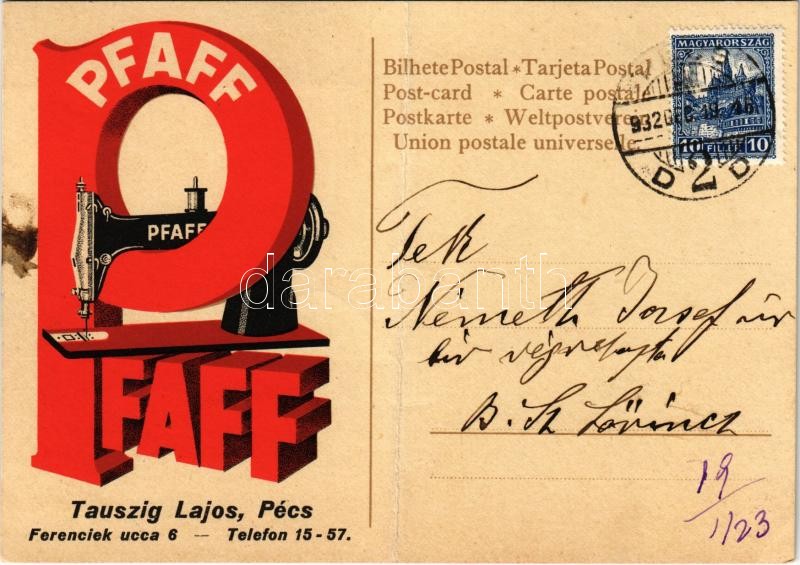 PFAFF
PFAFF
PFAFF
Tauszig Lajos, Pécs
Ferenciek ucca 6 — Telefon 15-57.
Bilhete Postal * Tarjeta Postal
Post-card * Carte postale
Postkarte * Weltpostverein
Union postale universelle
MAGYARORSZÁG
10 FILLÉR 10
932 DEC. 19
D 2 D
Tek
Németh József úr
bir végrehajtó
B. Sz. Lőrincz
19
1/23
darabanth